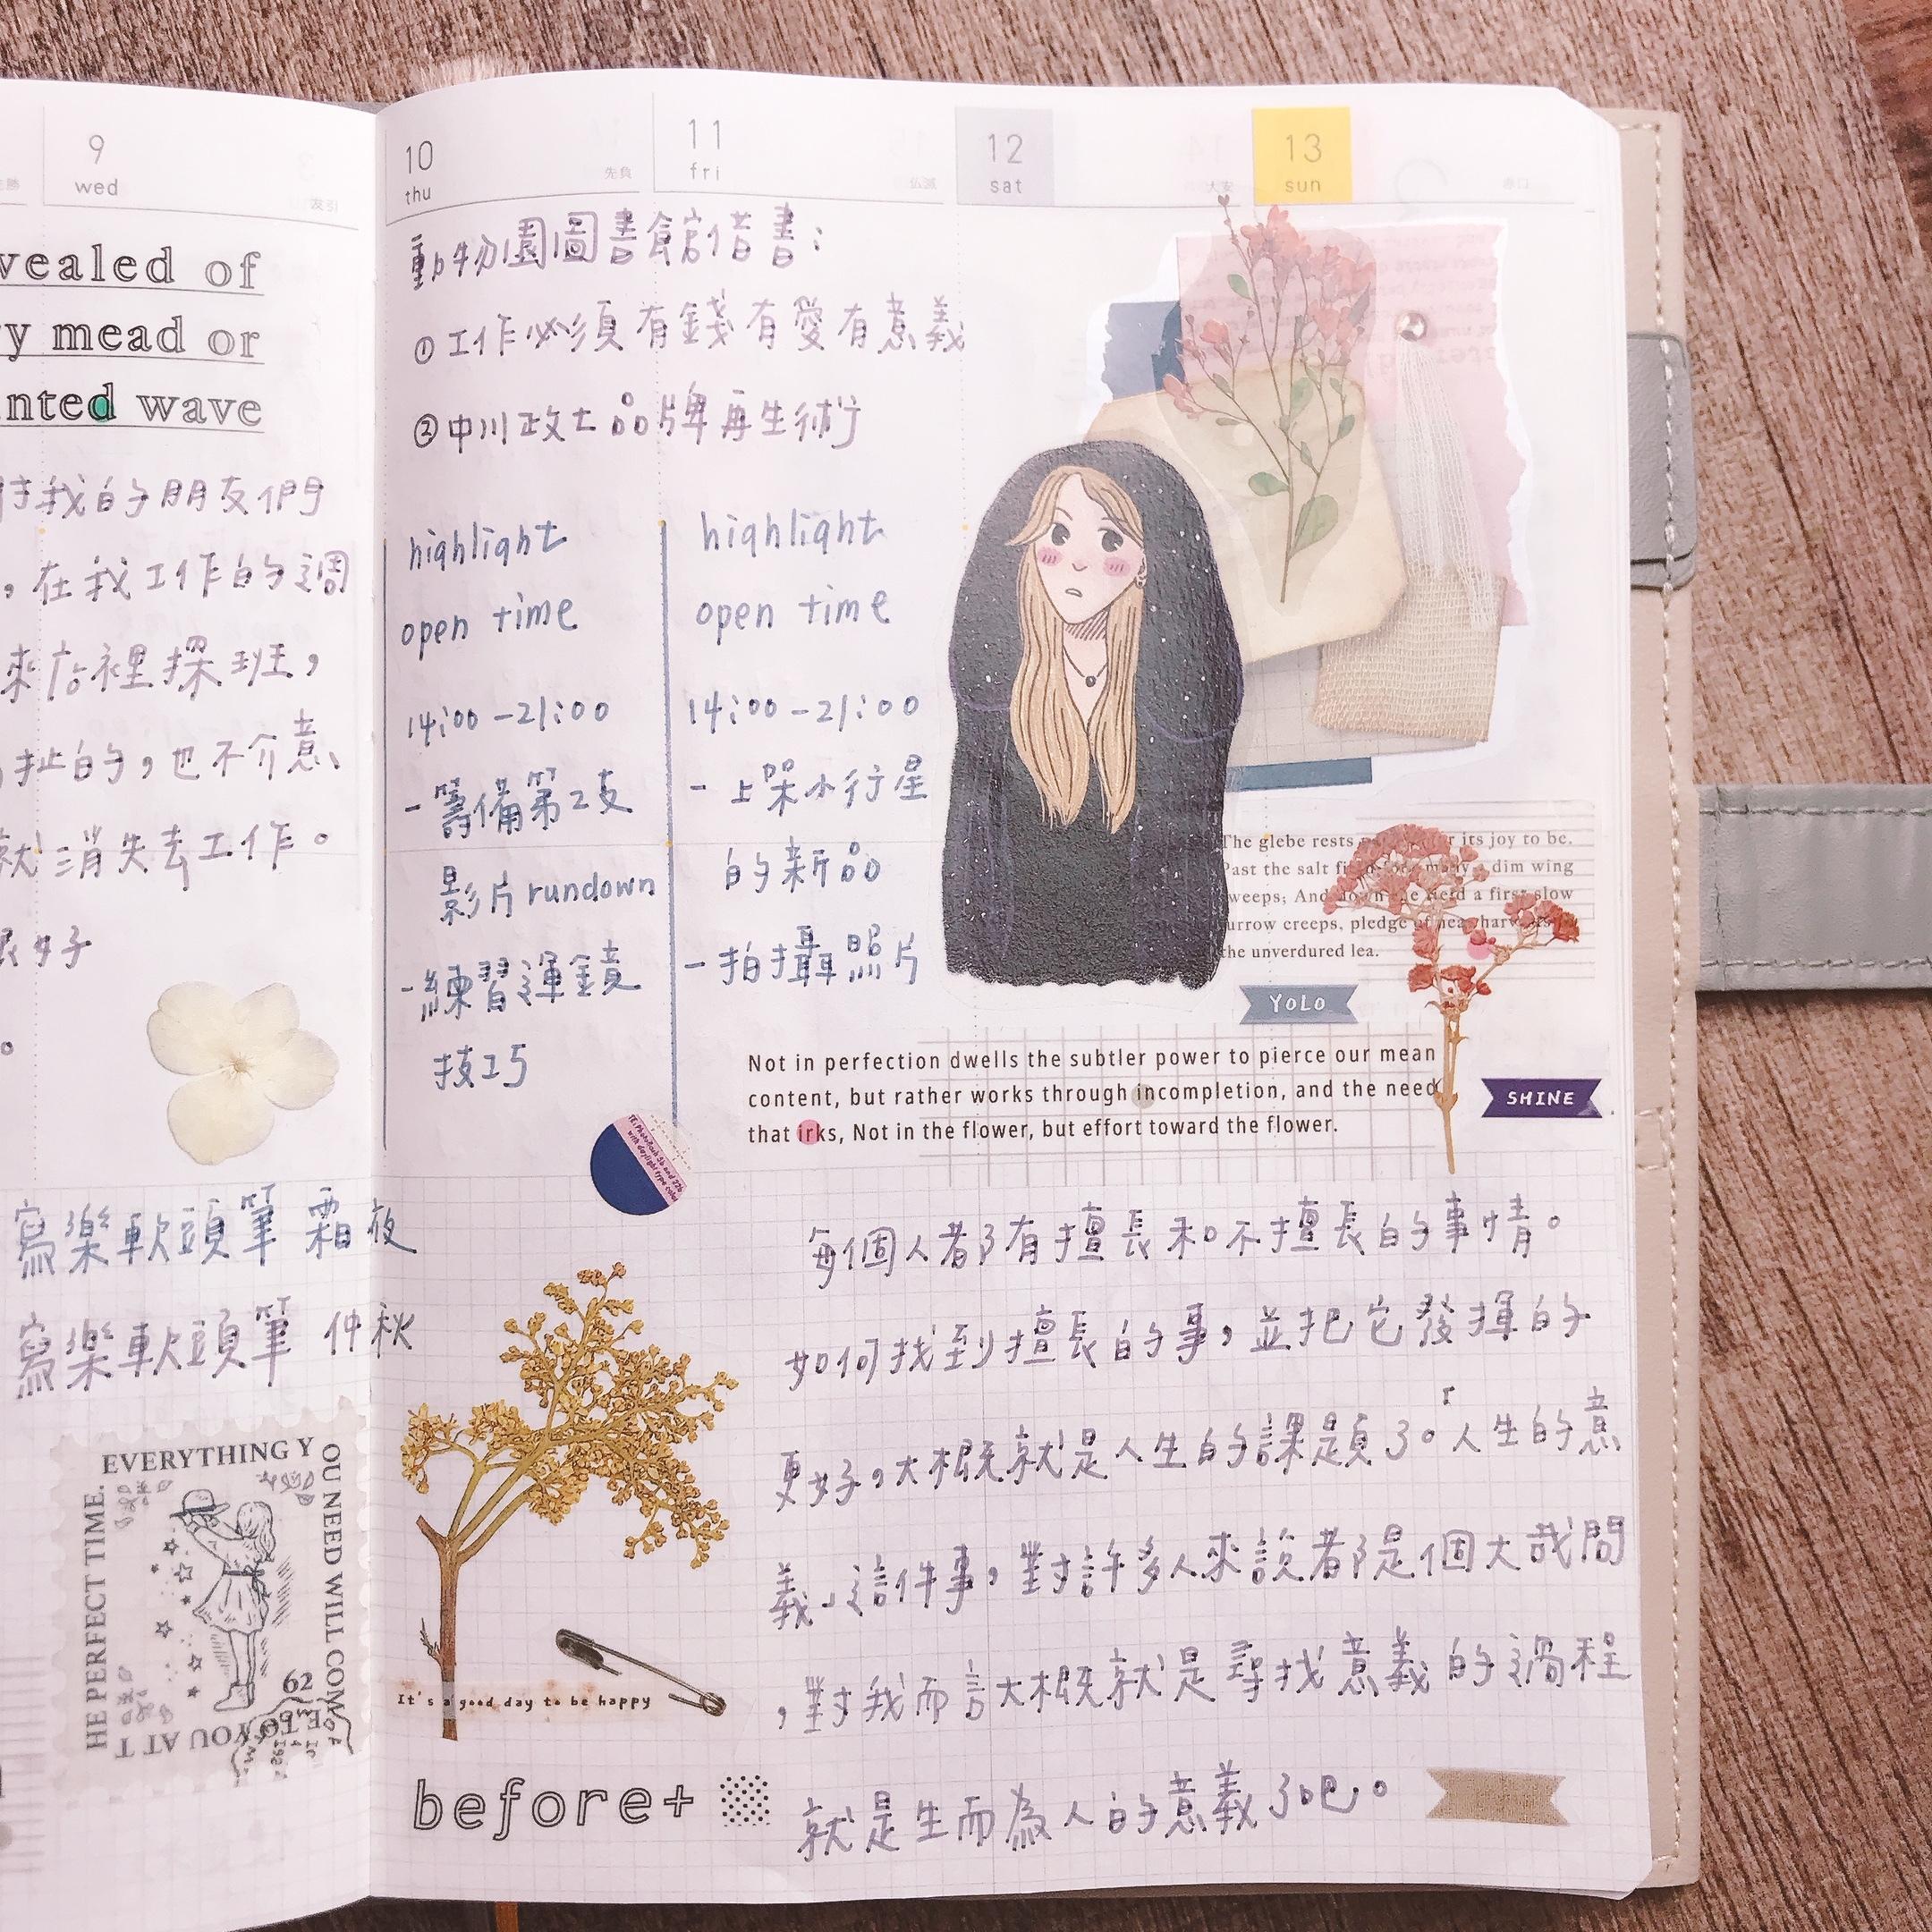 9
wed
友引
vealed of
y mead or
nted wave
我的朋友們
，在我工作的週
來店裡探班，
扯的，也不介意
就消失去工作。
好
。
寫樂軟頭筆 霜夜
寫樂軟頭筆 仲秋
EVERYTHING YOU NEED WILL COME TO YOU AT THE PERFECT TIME.
62
10
thu
先負
11
fri
仏滅
12
sat
大安
13
sun
赤口
動物園圖書館借書：
①工作必須有錢有愛有意義
②中川政七品牌再生術
highlight
open time
14:00-21:00
-籌備第2支
影片rundown
-練習運鏡
技巧
highlight
open time
14:00-21:00
-上架小行星
的新品
-拍攝照片
The glebe rests its joy to be.
Past the salt many a dim wing
sweeps; And down the field a first slow
furrow creeps, pledge of near harvests
the unverdured lea.
YOLO
Not in perfection dwells the subtler power to pierce our mean
content, but rather works through incompletion, and the need
that irks, Not in the flower, but effort toward the flower.
SHINE
每個人都有擅長和不擅長的事情。
如何找到擅長的事，並把它發揮的
更好，大概就是人生的課題了。「人生的意
義」這件事，對許多人來說都是個大哉問
，對我而言大概就是尋找意義的過程
就是生而為人的意義了吧。
It's a good day to be happy
before+